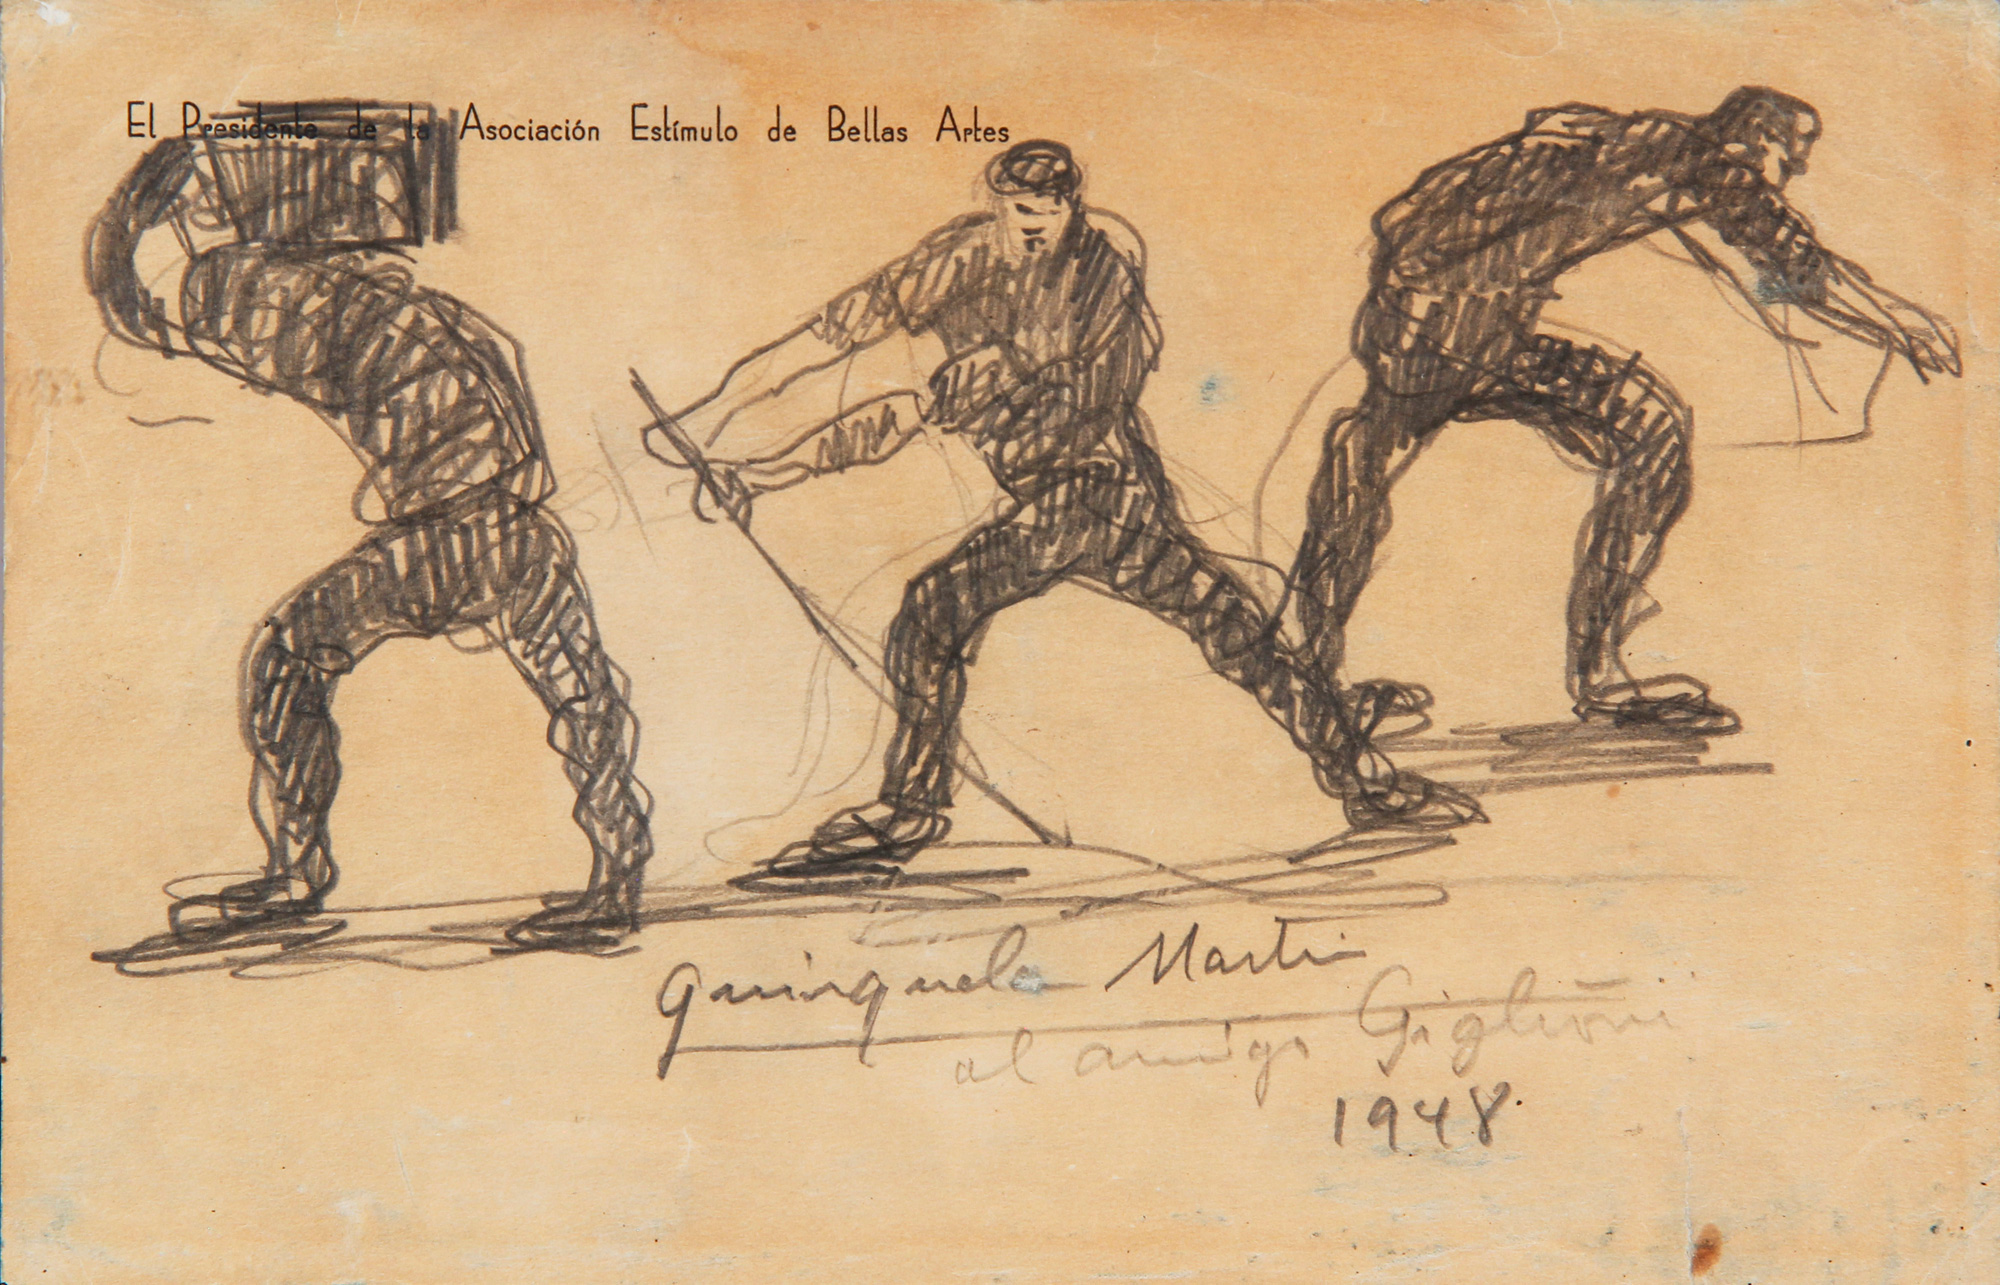 El Presidente de la Asociación Estímulo de Bellas Artes
Quinquela Martin
al amigo Giglioni
1948